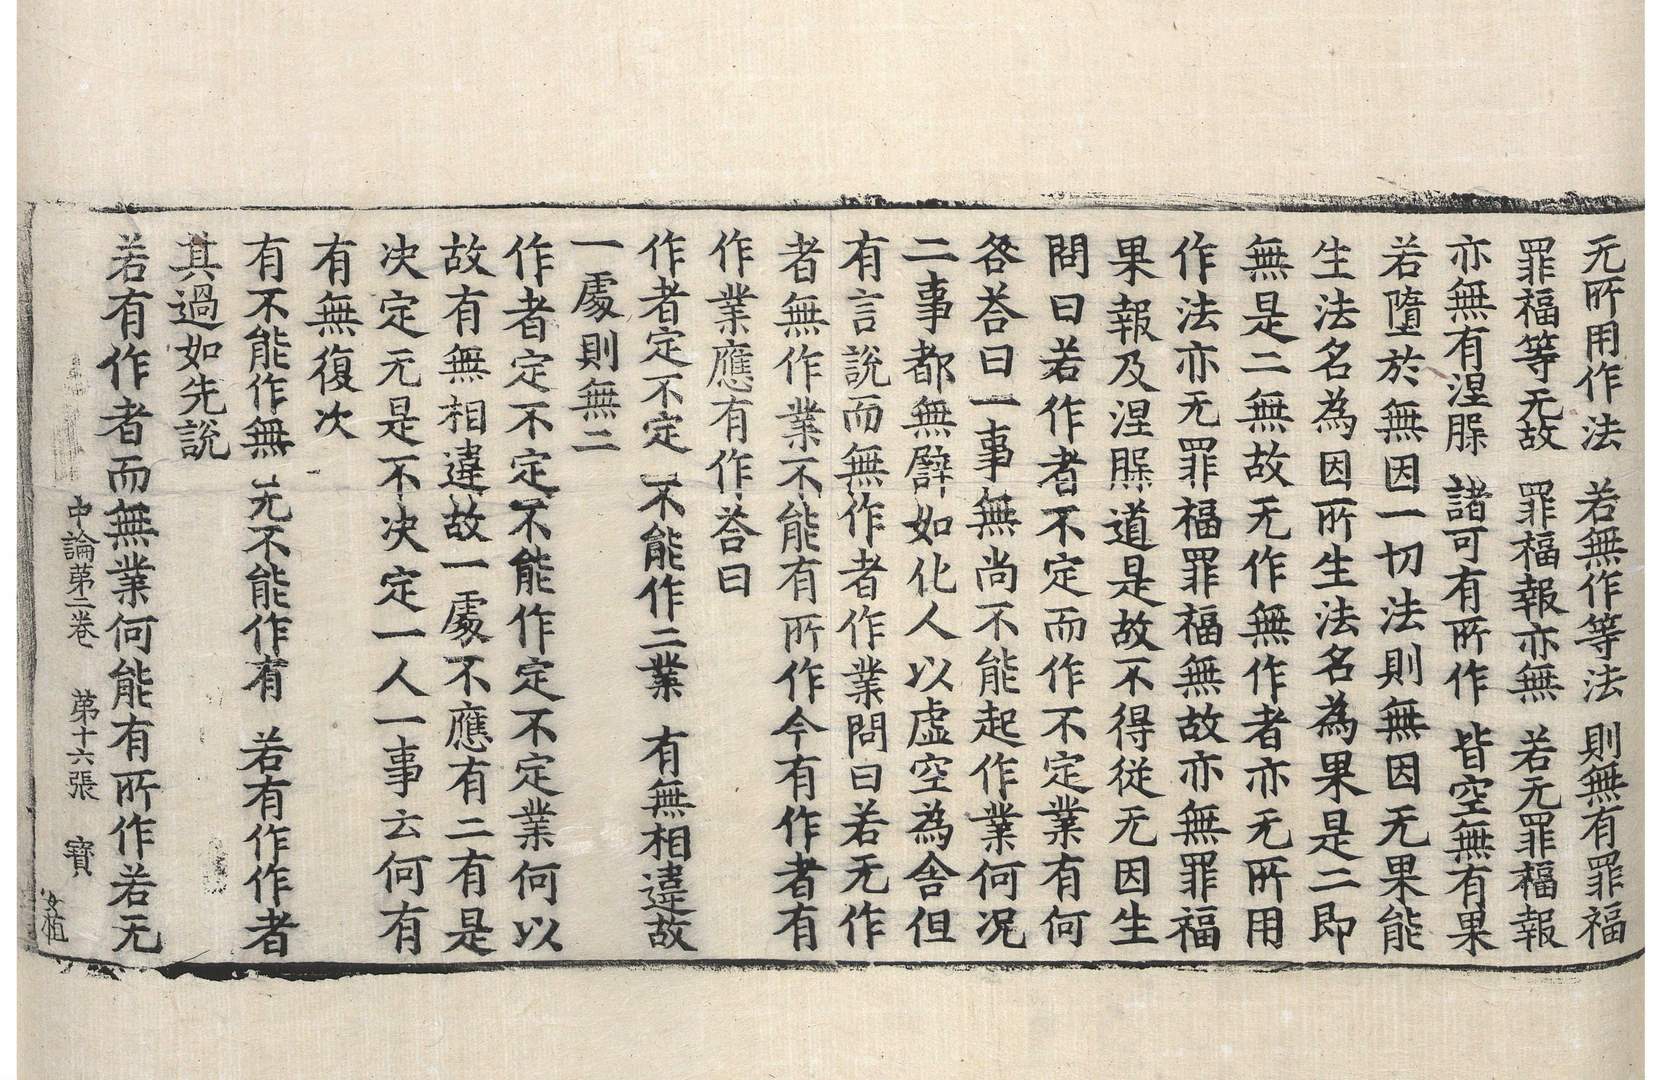 无所用作法 若無作等法 則無有罪福
罪福等无故 罪福報亦無 若无罪福報
亦無有涅膎 諸可有所作 皆空無有果
若墮於無因一切法則無因无果能
生法名為因所生法名為果是二即
無是二無故无作無作者亦无所用
作法亦无罪福罪福無故亦無罪福
果報及涅膎道是故不得従无因生
問曰若作者不定而作不定業有何
咎荅曰一事無尚不能起作業何況
二事都無譬如化人以虛空為舎但
有言說而無作者作業問曰若无作
者無作業不能有所作今有作者有
作業應有作荅曰
作者定不定 不能作二業 有無相違故
一處則無二
作者定不定不能作定不定業何以
故有無相違故一處不應有二有是
决定无是不决定一人一事云何有
有無復次
有不能作無 无不能作有 若有作作者
其過如先說
若有作者而無業何能有所作若无
中論第二卷 第十六張 寳